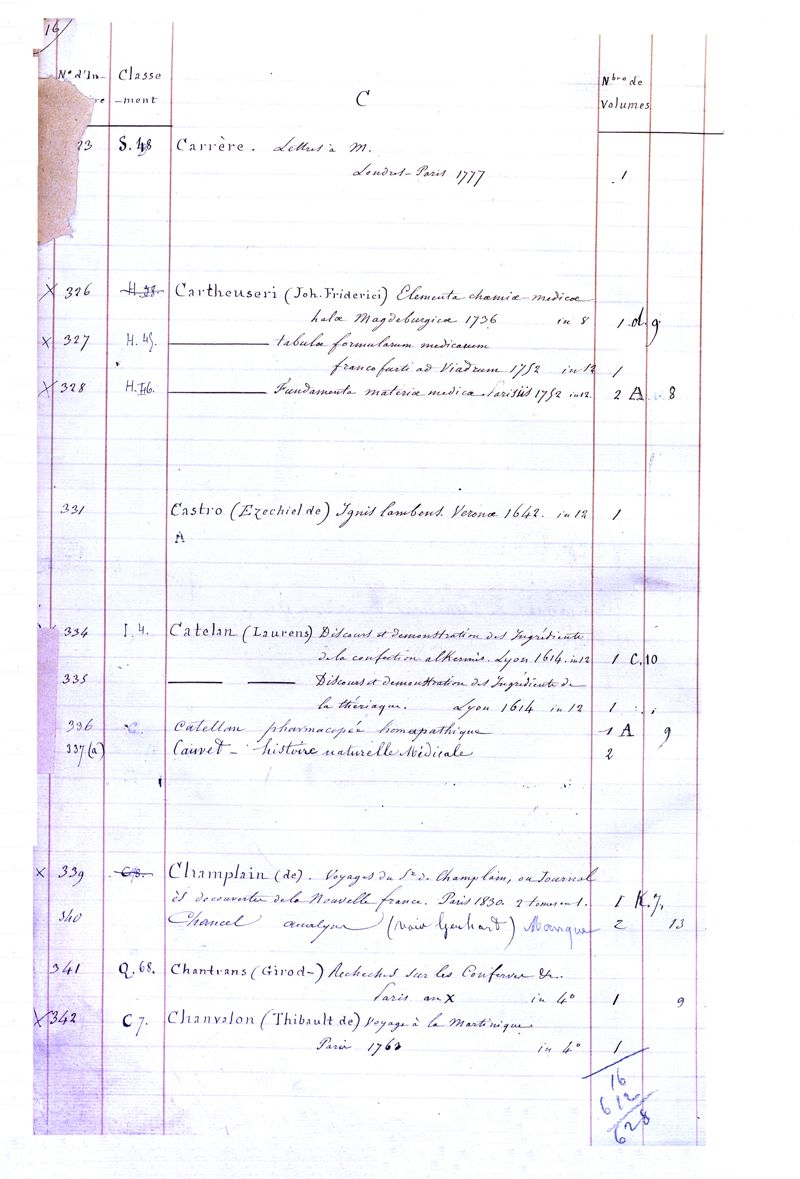 16
N° d'In- Classe Nbre de
re -ment C Volumes
23 S. 48 Carrère. Lettres à M.
Londres - Paris 1777 1
X 326 Cartheuseri (Joh. Friderici) Elementa chæmiæ medicæ
halæ Magdeburgicæ 1736 in 8 1 d. 9
X 327 H. 45. ——— tabulæ formularum medicarum
francofurti ad Viadrum 1752 in 12 1
X 328 H. 46. ——— Fundamenta materiæ medicæ Parisiis 1752 in 12. 2 A 8
331 Castro (Ezechiel de) Ignis lambens. Veronæ 1642. in 12 1
A
334 I. 4. Catelan (Laurens) Discours et demonstration des Ingrédients
de la confection alkermès. Lyon 1614. in 12 1 C. 10
335 —— —— Discours et demonstration des Ingrédients de
la thériaque. Lyon 1614 in 12 1
336 C. Catellan pharmacopée homœpathique 1 A 9
337 (a) Cauvet - histoire naturelle Médicale 2
X 339 C 8. Champlain (de). Voyages du Sr de Champlain, ou Journal
ès découvertes de la Nouvelle france. Paris 1830. 2 tomes en 1. 1 K. 7.
340 Chancel analyse (voir Gerhardt) Manque 2 13
341 Q. 68. Chantrans (Girod-) Recheches sur les Conferves &c.
Paris an X in 4° 1 9
X 342 C 7. Chanvalon (Thibault de) Voyage à la Martinique.
Paris 1763 in 4° 1
16
612
628